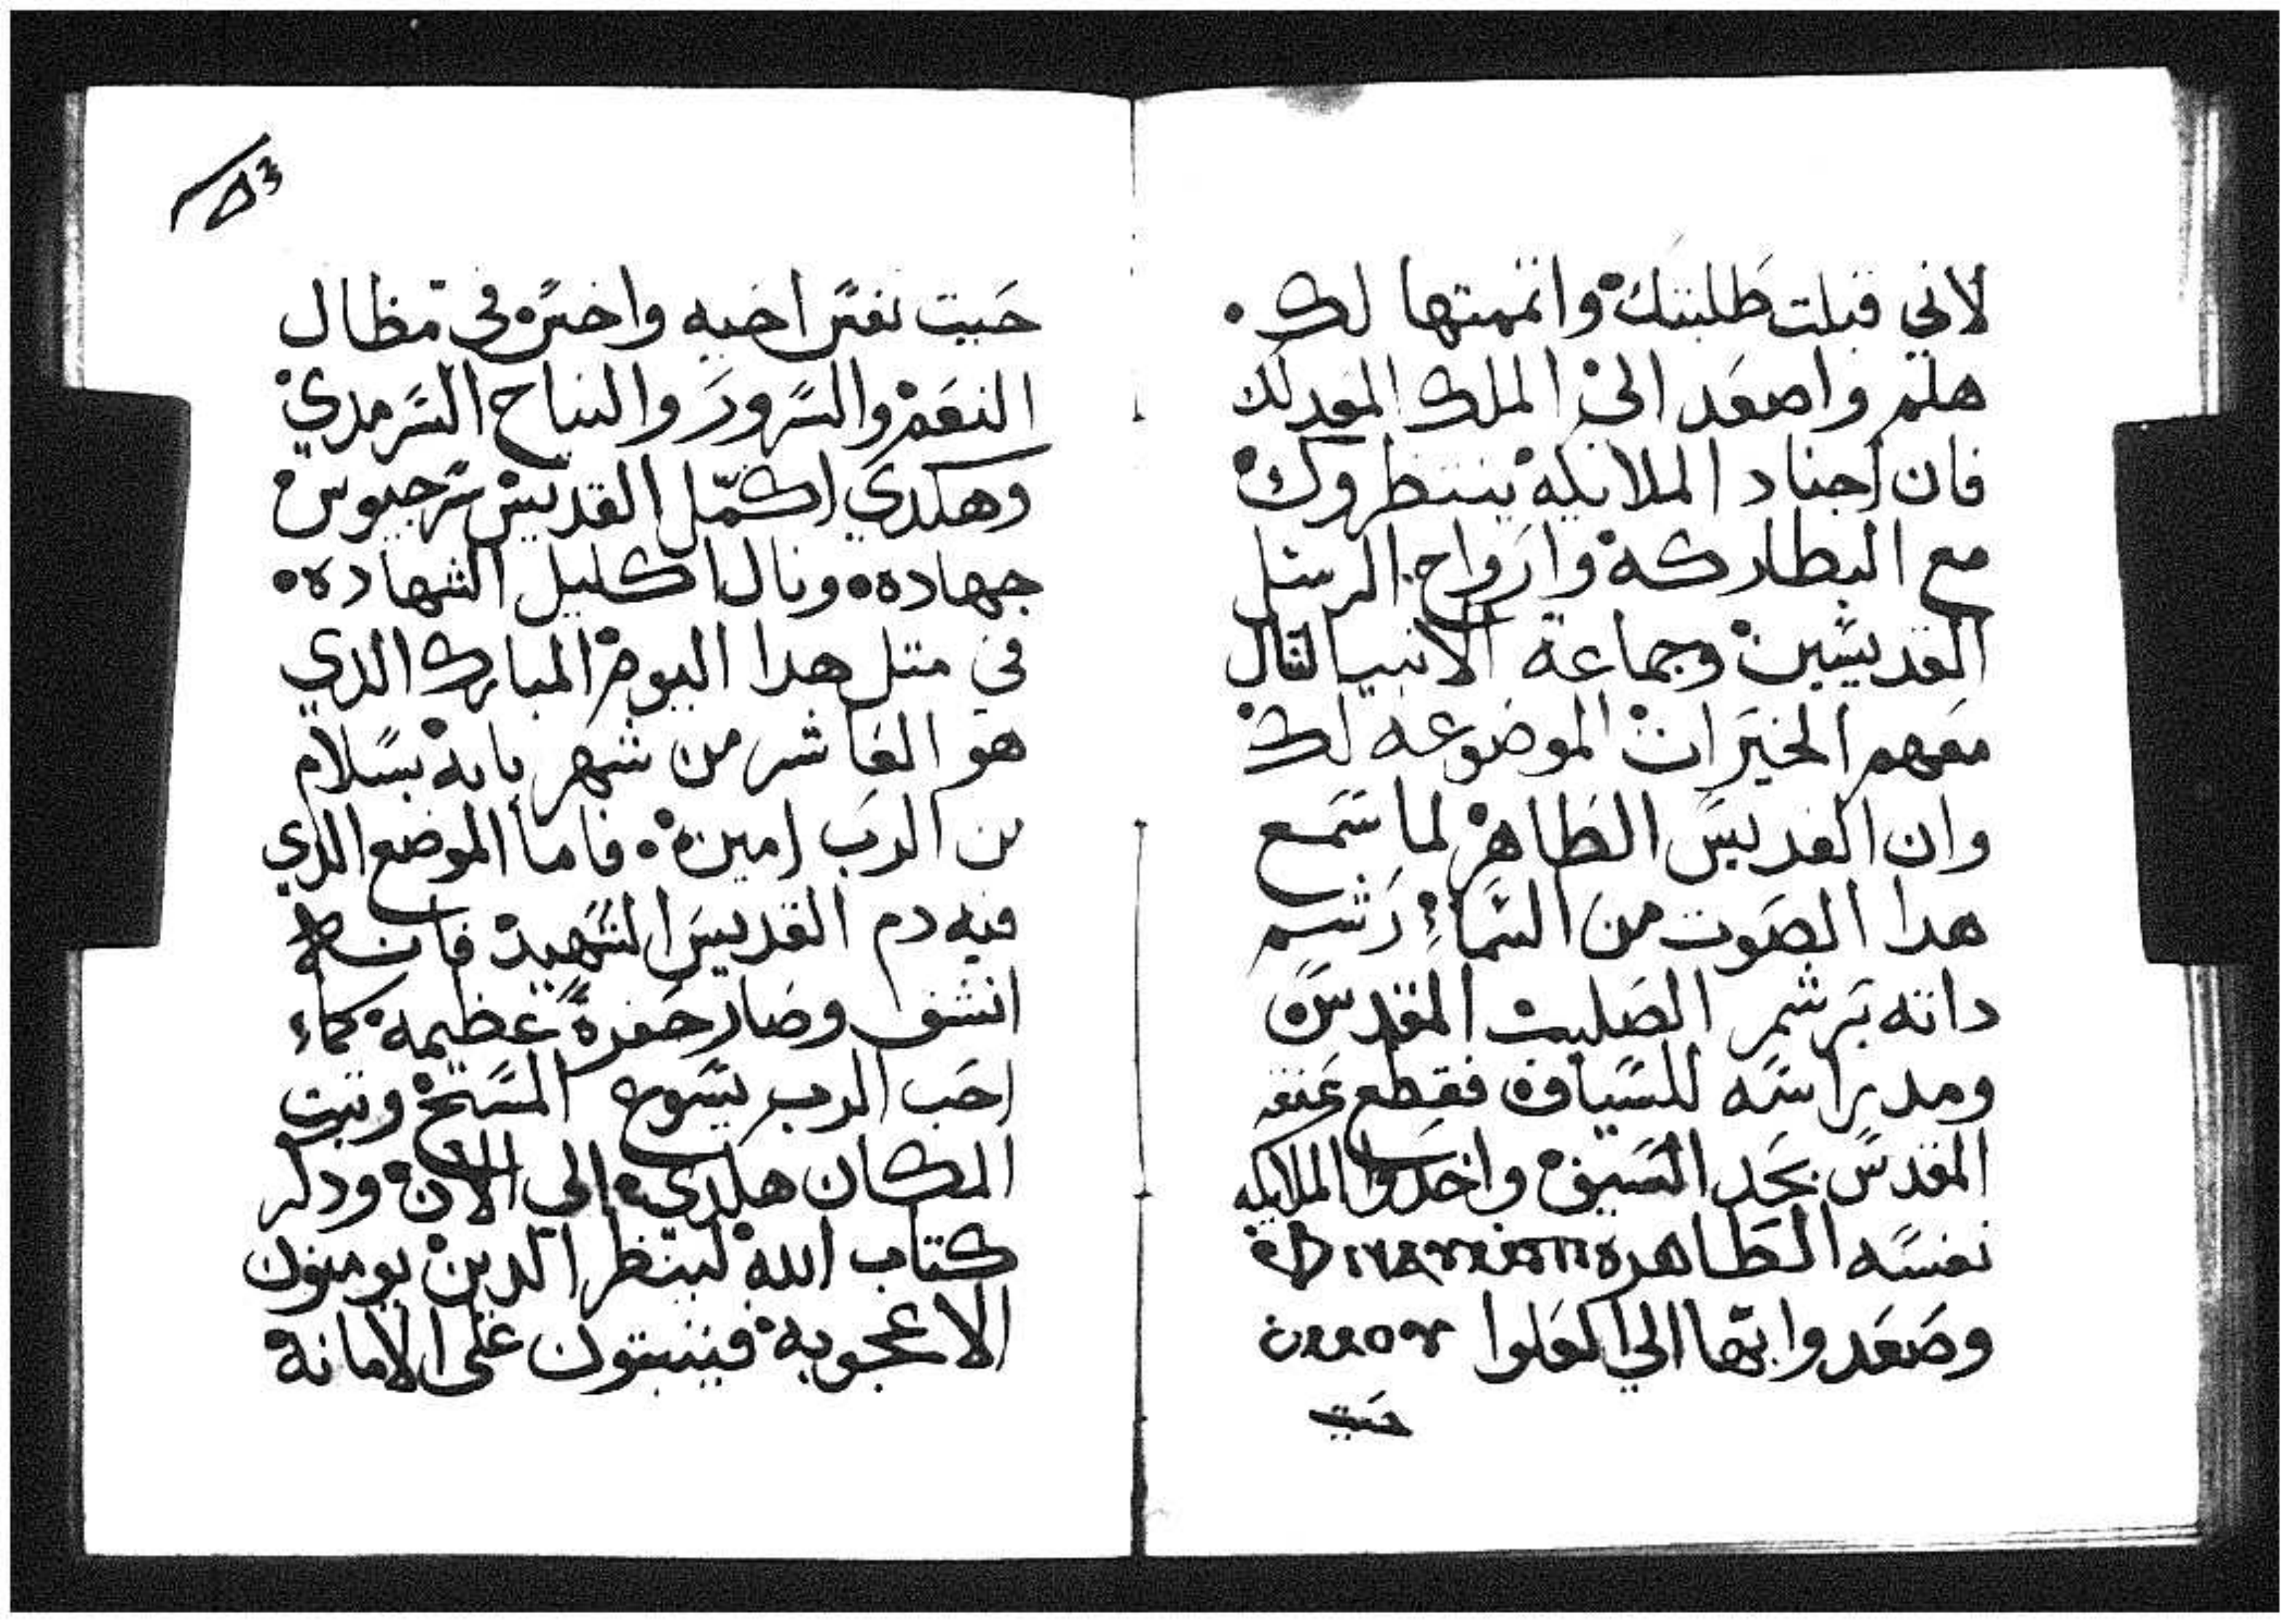 لاني قبلت طلبتك واتممتها لك
هلم واصعد الى الملك المعد لك
فان اجناد الملايكة ينتظروك
مع البطاركة وارواح الرسل
القديسين وجماعة الانبيا لتنال
معهم الخيرات الموضوعه لك
وان القديس الطاهر لما سمع
هدا الصوت من السماء رشم
داته برشم الصليب المقدس
ومد راسه للسياف فقطع عنقه
المقدس بحد السيف واخدوا الملايكه
نفسه الطاهره
وصعدوا بها الي العلوا
حيت
حيت نفس اخيه واخس في مظال
النعم والسرور والنياح السرمدي
وهكدي اكمل القديس سرجيوس
جهاده ونال اكليل الشهاده
في متل هدا اليوم المبارك الدي
هو العاشر من شهر بابة بسلام
من الرب امين فاما الموضع الدي
فيه دم القديس الشهيد فانه
انشق وصار حفرة عظيمة كما
احب الرب يسوع المسيح وتبت
المكان هكدي الي الان ودلك
كتاب الله لينظر الدين يومنون
الاعجوبة فيتبتون على الامانة